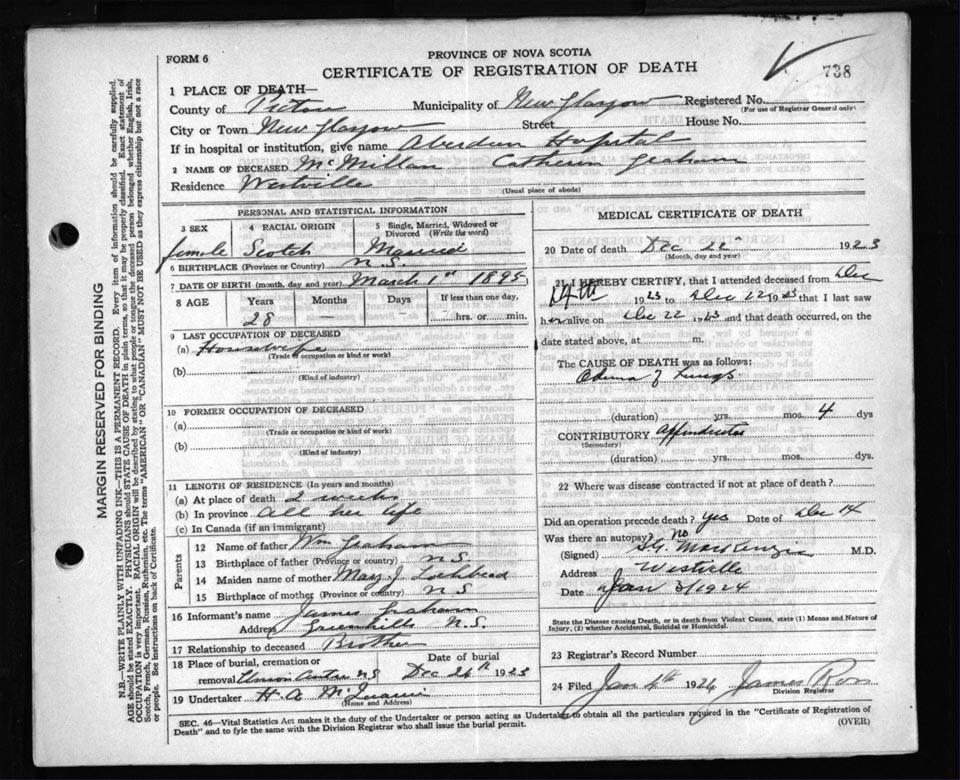 FORM 6
PROVINCE OF NOVA SCOTIA
CERTIFICATE OF REGISTRATION OF DEATH
738
1 PLACE OF DEATH—
County of Pictou Municipality of New Glasgow Registered No.
(For use of Registrar General only)
City or Town New Glasgow Street House No.
If in hospital or institution, give name Aberdeen Hospital
2 NAME OF DECEASED McMillan Catherine Graham
Residence Westville
(Usual place of abode)
MARGIN RESERVED FOR BINDING
N.B.—WRITE PLAINLY WITH UNFADING INK—THIS IS A PERMANENT RECORD. Every item of information should be carefully supplied.
AGE should be stated EXACTLY. PHYSICIANS should STATE CAUSE OF DEATH in plain terms, so that it may be properly classified. Exact statement of
OCCUPATION is very important. RACIAL ORIGIN will be described by stating to what people or tongue the deceased person belonged whether English, Irish,
Scotch, French, German, Russian, Ruthenian, etc. The terms "AMERICAN" OR "CANADIAN" MUST NOT BE USED as they express citizenship but not a race
or people. See instructions on back of Certificate.
PERSONAL AND STATISTICAL INFORMATION
3 SEX 4 RACIAL ORIGIN 5 Single, Married, Widowed or
Divorced (Write the word)
female Scotch Married
6 BIRTHPLACE (Province or Country) N.S.
7 DATE OF BIRTH (month, day and year) March 1st 1895
8 AGE Years Months Days If less than one day,
28 — — hrs. or min.
9 LAST OCCUPATION OF DECEASED
(a) Housewife
(Trade or occupation or kind or work)
(b)
(Kind of industry)
10 FORMER OCCUPATION OF DECEASED
(a)
(Trade or occupation or kind or work)
(b)
(Kind of industry)
11 LENGTH OF RESIDENCE (In years and months)
(a) At place of death 2 weeks
(b) In province all her life
(c) In Canada (if an immigrant)
Parents
12 Name of father Wm Graham
13 Birthplace of father (Province or country) N.S.
14 Maiden name of mother Mary J. Lochhead
15 Birthplace of mother (Province or country) N S
16 Informant's name James Graham
Address Greenhill N.S.
17 Relationship to deceased Brother
18 Place of burial, cremation or Date of burial
removal Union Centre NS Dec 24th 1923
19 Undertaker H. A.
(Name and Address)
MEDICAL CERTIFICATE OF DEATH
20 Date of death Dec 22" 1923
(Month, day and year)
21 I HEREBY CERTIFY, that I attended deceased from Dec
1923 to Dec 22 1923 that I last saw
her alive on Dec 22 1923 and that death occurred, on
date stated above, at m.
The CAUSE OF DEATH was as follows:
Odema of Lungs
(duration) yrs. mos. 4 dys
CONTRIBUTORY Appendicitis
(Secondary)
(duration) yrs. mos. dys.
22 Where was disease contracted if not at place of death?
Did an operation precede death? yes Date of Dec 14
Was there an autopsy? No
(Signed) MacKenzie M.D.
Address Westville
Date Jan 3/1924
State the Disease causing Death, or in death from Violent Causes, state (1) Means and Nature of
Injury, (2) whether Accidental, Suicidal or Homicidal.
23 Registrar's Record Number
24 Filed Jan 4th 1924 James Ross
Division Registrar
SEC. 46—Vital Statistics Act makes it the duty of the Undertaker or person acting as Undertaker to obtain all the particulars required in the "Certificate of Registration of
Death" and to fyle the same with the Division Registrar who shall issue the burial permit.
(OVER)